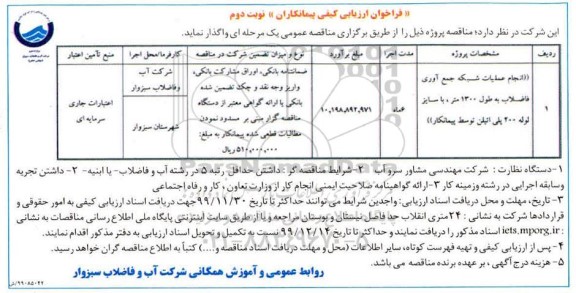 « فراخوان ارزیابی کیفی پیمانکاران » نوبت دوم
این شرکت در نظر دارد؛ مناقصه پروژه ذیل را از طریق برگزاری مناقصه عمومی یک مرحله ای واگذار نماید.
ردیف
مشخصات پروژه
مدت اجرا
مبلغ برآورد
نوع و میزان تضمین شرکت در مناقصه
کارفرما/محل اجرا
منبع تأمین اعتبار
۱
((انجام عملیات شبکه جمع آوری
فاضلاب به طول ۱۳۰۰ متر ، با سایز
لوله ۲۰۰ پلی اتیلن توسط پیمانکار))
۶ماه
۱۰,۱۹۸,۸۹۲,۹۷۱
ضمانتنامه بانکی، اوراق مشارکت بانکی،
واریز وجه نقد و چک تضمین شده
بانکی یا ارائه گواهی معتبر از دستگاه
مناقصه گزار مبنی بر مسدود نمودن
مطالبات قطعی شده پیمانکار به مبلغ:
۵۱۰,۰۰۰,۰۰۰ریال
شرکت آب
وفاضلاب سبزوار
شهرستان سبزوار
اعتبارات جاری
سرمایه ای
۱-دستگاه نظارت : شرکت مهندسی مشاور سرو آب ۲-شرایط مناقصه گر :داشتن حداقل رتبه ۵ در رشته آب و فاضلاب- یا ابنیه- ۲- داشتن تجربه
وسابقه اجرایی در رشته وزمینه کار ۳-ارائه گواهینامه صلاحیت ایمنی انجام کار از وزارت تعاون ، کار و رفاه اجتماعی
۳- تاریخ، مهلت و محل دریافت اسناد ارزیابی: واجدین شرایط می توانند حداکثر تا تاریخ ۹۹/۱۱/۳۰ جهت دریافت اسناد ارزیابی کیفی به امور حقوقی و
قراردادها شرکت به نشانی : ۲۴متری انقلاب حد فاصل دبستان و بوستان مراجعه و یا از طریق سایت اینترنتی پایگاه ملی اطلاع رسانی مناقصات به نشانی
iets.mporg.ir : اسناد مذکور را دریافت نمایند و حداکثر تا تاریخ ۹۹/۱۲/۱۴ نسبت به تکمیل و تحویل اسناد ارزیابی به دفتر مذکور اقدام نمایند.
۴- پس از ارزیابی کیفی و تهیه فهرست کوتاه، سایر اطلاعات (محل و مهلت دریافت اسناد مناقصه و....) کتباً به اطلاع مناقصه گران خواهد رسید.
۵- هزینه درج آگهی ، بر عهده برنده مناقصه می باشد.
روابط عمومی و آموزش همگانی شرکت آب و فاضلاب سبزوار